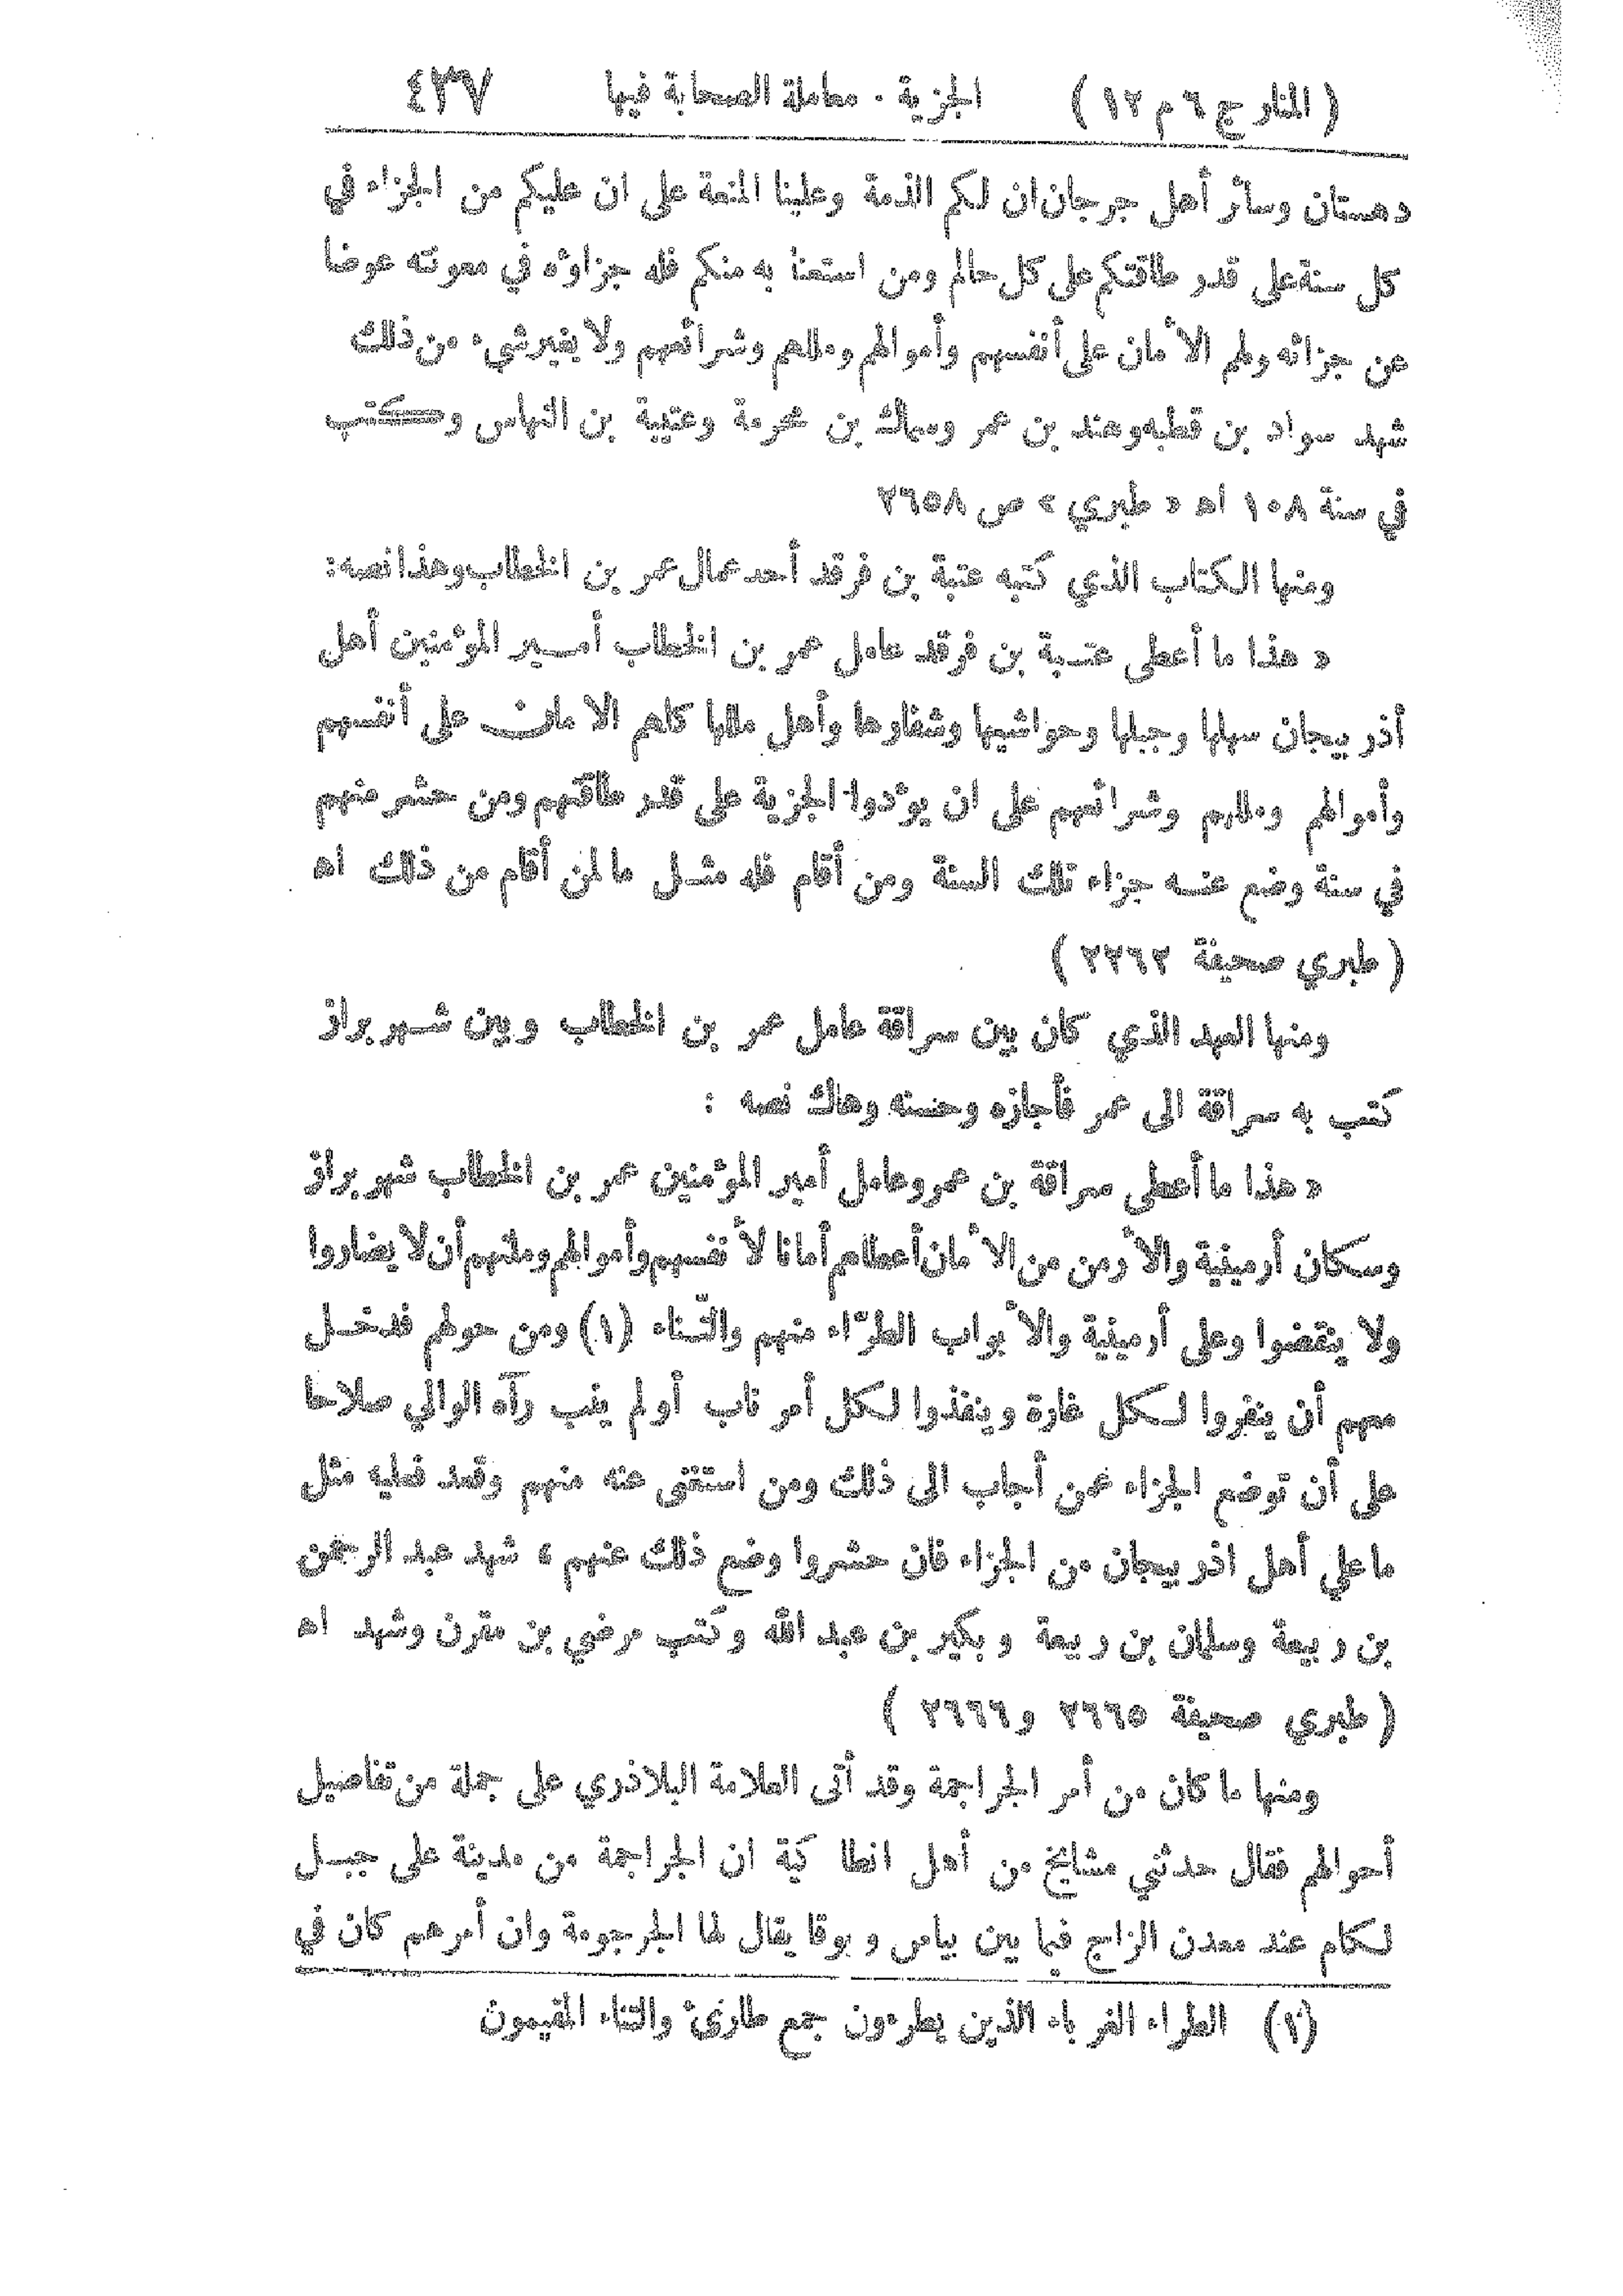 ( المنار ج ٦ م ١٢ ) الجزية . معاملة الصحابة فيها ٤٣٧
دهستان وسائر أهل جرجان ان لكم الذمة وعلينا المنعة على ان عليكم من الجزاء في
كل سنة على قدر طاقتكم على كل حالم ومن استعنا به منكم فله جزاؤه في معونته عوضا
عن جزائه ولهم الأمان على أنفسهم وأموالهم ومللهم وشرائعهم ولا يغير شيء من ذلك
شهد سواد بن قطبه وهند بن عمر وسماك بن مخرمة وعتيبة بن النهاس وكتب
في سنة ١٠٨ اه « طبري » ص ٢٦٥٨
ومنها الكتاب الذي كتبه عتبة بن فرقد أحد عمال عمر بن الخطاب وهذا نصه :
« هذا ما أعطى عتبة بن فرقد عامل عمر بن الخطاب أمير المؤمنين أهل
أذربيجان سهلها وجبلها وحواشيها وشفارها وأهل مللها كلهم الامان على أنفسهم
وأموالهم ومللهم وشرائعهم على ان يؤدوا الجزية على قدر طاقتهم ومن حشر منهم
في سنة وضع عنه جزاء تلك السنة ومن أقام فله مثل ما لمن أقام من ذلك اه
( طبري صحيفة ٢٢٦٢ )
ومنها العهد الذي كان بين سراقة عامل عمر بن الخطاب وبين شهربراز
كتب به سراقة الى عمر فأجازه وحسنه وهاك نصه :
« هذا ما أعطى سراقة بن عمرو عامل أمير المؤمنين عمر بن الخطاب شهربراز
وسكان أرمينية والأرمن من الأمان أعطاهم أمانا لأنفسهم وأموالهم وملتهم أن لا يضاروا
ولا ينقضوا وعلى أرمينية والأبواب الطرّاء منهم والتّناء (١) ومن حولهم فدخل
معهم أن ينفروا لكل غازة وينفذوا لكل أمر ناب أو لم ينب رآه الوالي صلاحا
على أن توضع الجزاء عمن أجاب الى ذلك ومن استغنى عنه منهم وقعد فعليه مثل
ما على أهل اذربيجان من الجزاء فان حشروا وضع ذلك عنهم ، شهد عبد الرحمن
بن ربيعة وسلمان بن ربيعة وبكير بن عبد الله وكتب مرضي بن مقرن وشهد اه
( طبري صحيفة ٢٦٦٥ و٢٦٦٦ )
ومنها ما كان من أمر الجراجمة وقد أتى العلامة البلاذري على جملة من تفاصيل
أحوالهم فقال حدثني مشايخ من أهل انطاكية ان الجراجمة من مدينة على جبل
لكام عند معدن الزاج فيما بين بياس وبوقا يقال لها الجرجومة وان أمرهم كان في
(١) الطراء الغرباء الذين يطرءون جمع طارئ والتناء المقيمون